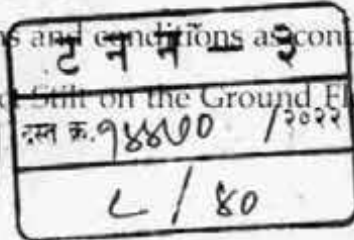 and conditions as con
ट न न - ३
Stilt on the Ground Fl
दस्त क्र. १४४७० /२०२२
८ / ४०